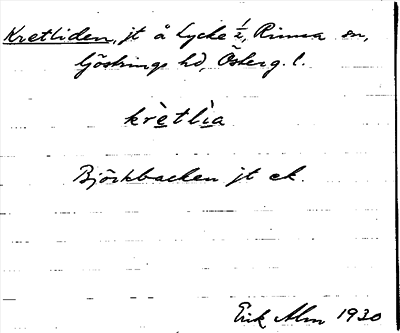 Kretliden, jt å Lycke ½, Rinna sn,
Göstrings hd, Österg. l.
krètlìa
Björkbacken jt ck.
Erik Alm 1930